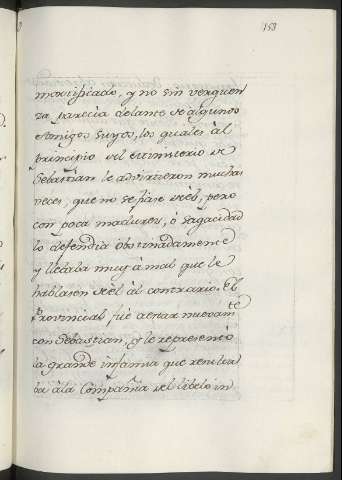 153
mortificado, y no sin verguen
za parecia delante de algunos
Amigos suyos, los quales àl
principio del ministerio de
Sebastian le advirtieron muchas
veces, que no se fiase dèèl, pero
con poca madurez, ò sagacidad
lo defendia obstinadamente
y llebaba muy à mal que le
hablasen deèl àl contrario. El
Provincial fuè aestar nuevam.te
con Sebastian, y le representò
la grande infamia que resulta
ba àla Compañia del libelo in